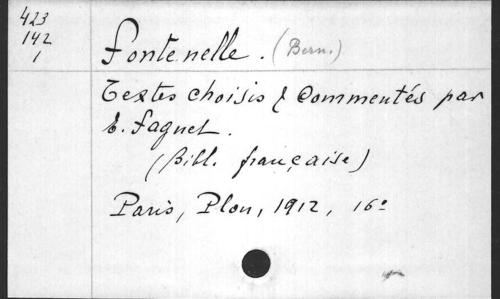 423
142
1
Fontenelle. (Bern.)
Textes choisis & Commentés par
E. Faguet.
(Bibl. française)
Paris, Plon, 1912, 16º